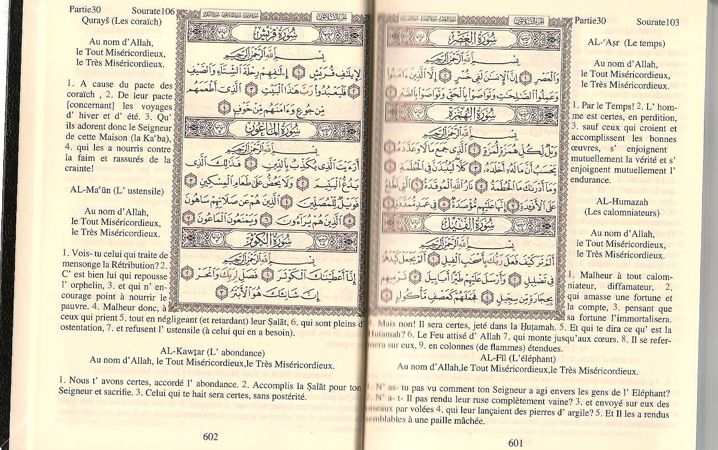 Partie30 Sourate106
Qurayš (Les coraïch)
Au nom d'Allah,
le Tout Miséricordieux,
le Très Miséricordieux.
1. A cause du pacte des
coraïch , 2. De leur pacte
[concernant] les voyages
d' hiver et d' été. 3. Qu'
ils adorent donc le Seigneur
de cette Maison (la Ka'ba),
4. qui les a nourris contre
la faim et rassurés de la
crainte!
AL-Ma'ūn (L' ustensile)
Au nom d'Allah,
le Tout Miséricordieux,
le Très Miséricordieux.
1. Vois- tu celui qui traite de
mensonge la Rétribution? 2.
C' est bien lui qui repousse
l' orphelin, 3. et qui n' en-
courage point à nourrir le
pauvre. 4. Malheur donc, à
ceux qui prient 5. tout en négligeant (et retardant) leur Ṣalāt, 6. qui sont pleins d'
ostentation, 7. et refusent l' ustensile (à celui qui en a besoin).
سُورَةُ قُرَيْشٍ
بِسْمِ اللَّهِ الرَّحْمَٰنِ الرَّحِيمِ
لِإِيلَٰفِ قُرَيْشٍ ١ إِۦلَٰفِهِمْ رِحْلَةَ الشِّتَاءِ وَالصَّيْفِ
٢ فَلْيَعْبُدُوا رَبَّ هَٰذَا الْبَيْتِ ٣ الَّذِي أَطْعَمَهُم
مِّن جُوعٍ وَءَامَنَهُم مِّنْ خَوْفٍ ٤
سُورَةُ الْمَاعُونِ
بِسْمِ اللَّهِ الرَّحْمَٰنِ الرَّحِيمِ
أَرَءَيْتَ الَّذِي يُكَذِّبُ بِالدِّينِ ١ فَذَٰلِكَ الَّذِي
يَدُعُّ الْيَتِيمَ ٢ وَلَا يَحُضُّ عَلَىٰ طَعَامِ الْمِسْكِينِ ٣
فَوَيْلٌ لِّلْمُصَلِّينَ ٤ الَّذِينَ هُمْ عَن صَلَاتِهِمْ سَاهُونَ
٥ الَّذِينَ هُمْ يُرَاءُونَ ٦ وَيَمْنَعُونَ الْمَاعُونَ ٧
سُورَةُ الْكَوْثَرِ
بِسْمِ اللَّهِ الرَّحْمَٰنِ الرَّحِيمِ
إِنَّا أَعْطَيْنَٰكَ الْكَوْثَرَ ١ فَصَلِّ لِرَبِّكَ وَانْحَرْ ٢
إِنَّ شَانِئَكَ هُوَ الْأَبْتَرُ ٣
AL-Kawṯar (L' abondance)
Au nom d'Allah, le Tout Miséricordieux,le Très Miséricordieux.
1. Nous t' avons certes, accordé l' abondance. 2. Accomplis la Ṣalāt pour ton
Seigneur et sacrifie. 3. Celui qui te hait sera certes, sans postérité.
602
سُورَةُ الْعَصْرِ
بِسْمِ اللَّهِ الرَّحْمَٰنِ الرَّحِيمِ
وَالْعَصْرِ ١ إِنَّ الْإِنسَٰنَ لَفِي خُسْرٍ ٢ إِلَّا الَّذِينَ ءَامَنُوا
وَعَمِلُوا الصَّٰلِحَٰتِ وَتَوَاصَوْا بِالْحَقِّ وَتَوَاصَوْا بِالصَّبْرِ ٣
سُورَةُ الْهُمَزَةِ
بِسْمِ اللَّهِ الرَّحْمَٰنِ الرَّحِيمِ
وَيْلٌ لِّكُلِّ هُمَزَةٍ لُّمَزَةٍ ١ الَّذِي جَمَعَ مَالًا وَعَدَّدَهُ ٢
يَحْسَبُ أَنَّ مَالَهُ أَخْلَدَهُ ٣ كَلَّا لَيُنبَذَنَّ فِي الْحُطَمَةِ ٤
وَمَا أَدْرَىٰكَ مَا الْحُطَمَةُ ٥ نَارُ اللَّهِ الْمُوقَدَةُ ٦ الَّتِي تَطَّلِعُ
عَلَى الْأَفْئِدَةِ ٧ إِنَّهَا عَلَيْهِم مُّؤْصَدَةٌ ٨ فِي عَمَدٍ مُّمَدَّدَةٍ ٩
سُورَةُ الْفِيلِ
بِسْمِ اللَّهِ الرَّحْمَٰنِ الرَّحِيمِ
أَلَمْ تَرَ كَيْفَ فَعَلَ رَبُّكَ بِأَصْحَٰبِ الْفِيلِ ١ أَلَمْ يَجْعَلْ كَيْدَهُمْ
فِي تَضْلِيلٍ ٢ وَأَرْسَلَ عَلَيْهِمْ طَيْرًا أَبَابِيلَ ٣ تَرْمِيهِم
بِحِجَارَةٍ مِّن سِجِّيلٍ ٤ فَجَعَلَهُمْ كَعَصْفٍ مَّأْكُولٍ ٥
Partie30 Sourate103
AL-ʿAṣr (Le temps)
Au nom d'Allah,
le Tout Miséricordieux,
le Très Miséricordieux.
1. Par le Temps! 2. L' hom-
me est certes, en perdition,
3. sauf ceux qui croient et
accomplissent les bonnes
œuvres, s' enjoignent
mutuellement la vérité et s'
enjoignent mutuellement l'
endurance.
AL-Humazah
(Les calomniateurs)
Au nom d'Allah,
le Tout Miséricordieux,
le Très Miséricordieux.
1. Malheur à tout calom-
niateur, diffamateur, 2.
qui amasse une fortune et
la compte, 3. pensant que
sa fortune l'immortalisera.
4. Mais non! Il sera certes, jeté dans la Ḥuṭamah. 5. Et qui te dira ce qu' est la
Ḥuṭamah? 6. Le Feu attisé d' Allah 7. qui monte jusqu'aux cœurs. 8. Il se refer-
mera sur eux, 9. en colonnes (de flammes) étendues.
AL-Fīl (L'éléphant)
Au nom d'Allah, le Tout Miséricordieux,le Très Miséricordieux.
1. N' as- tu pas vu comment ton Seigneur a agi envers les gens de l' Eléphant?
2. N' a- t- Il pas rendu leur ruse complètement vaine? 3. et envoyé sur eux des
oiseaux par volées 4. qui leur lançaient des pierres d' argile? 5. Et Il les a rendus
semblables à une paille mâchée.
601